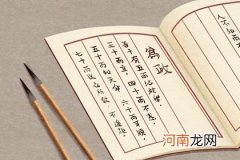 人不知而
為政
吾十有五而志於學
三十而立 四十而不惑
五十而知天命 六十而耳順
七十而從心所欲 不逾矩